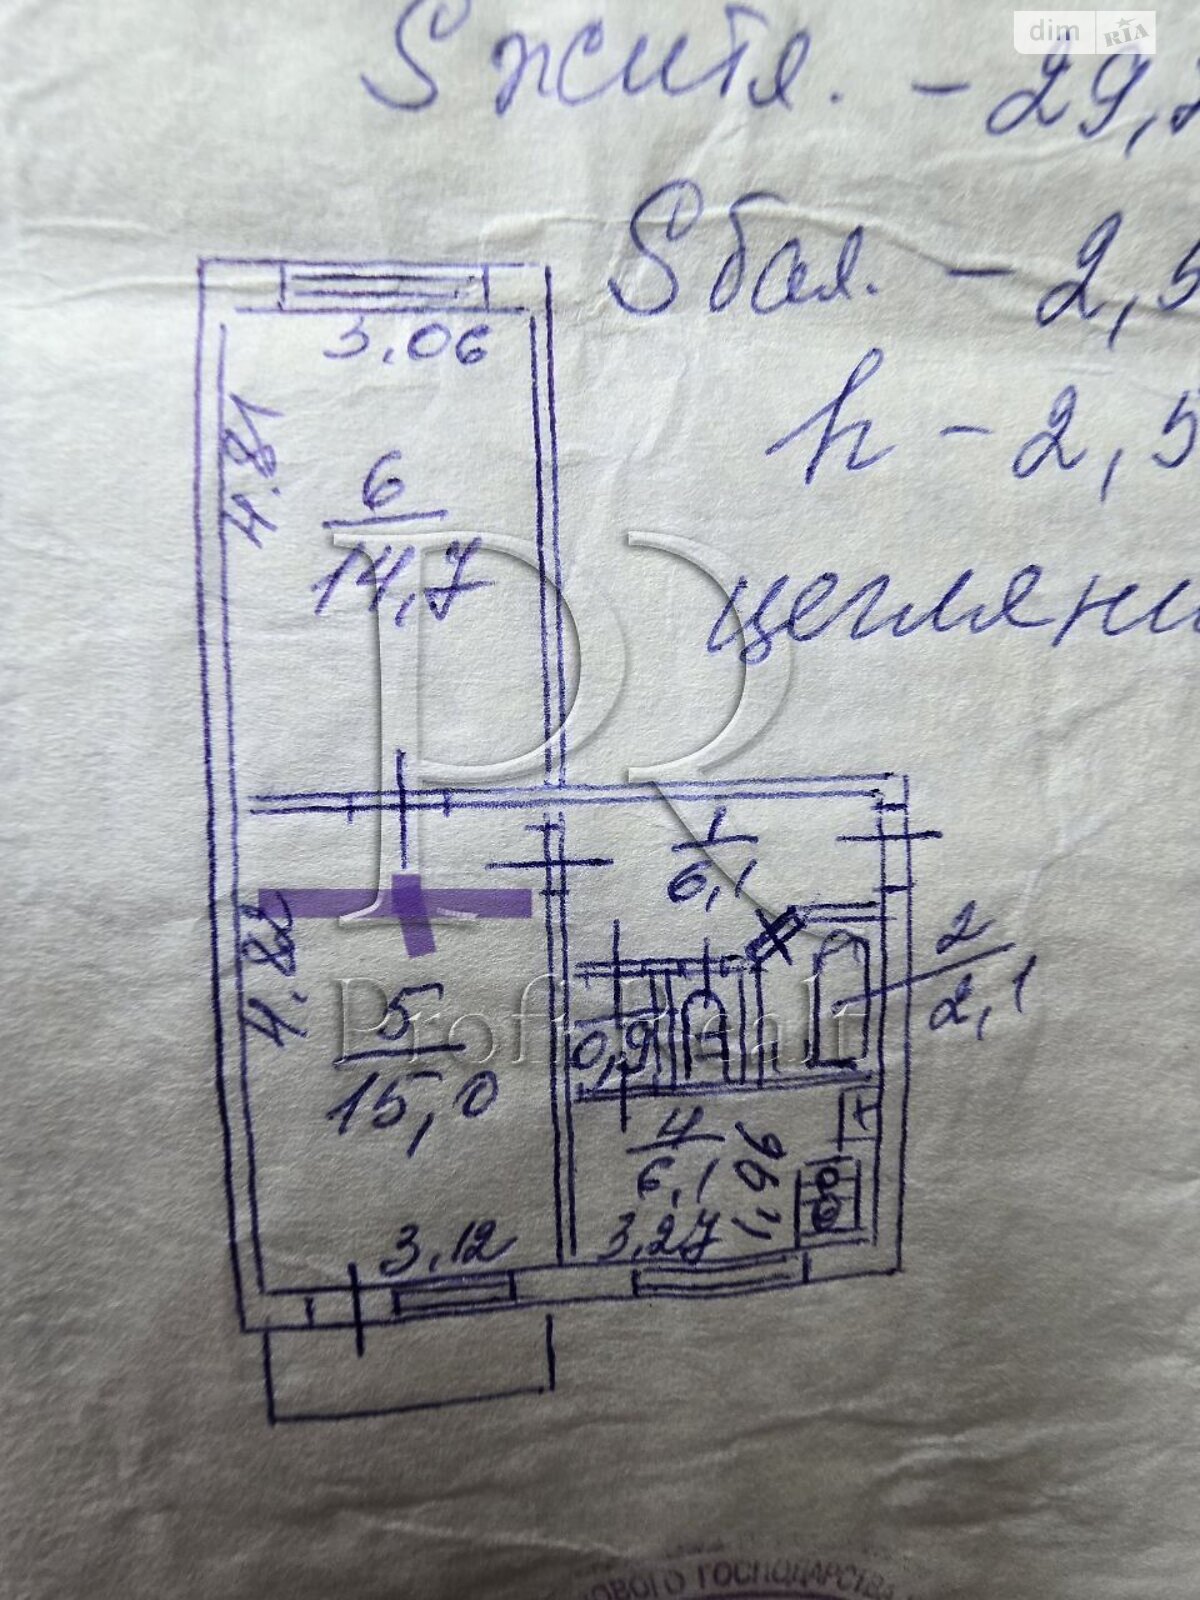 dim RIA
S житл. - 29,
S бал. - 2,5
h - 2,5
цегляни
3.06
4.81
6
14,7
1
6,1
4.82
2
2,1
5
15,0
0,9
Profi Realt
4
6,1
1.96
3,27
3.12
ОВОГО ГОСПОДАРСТВА